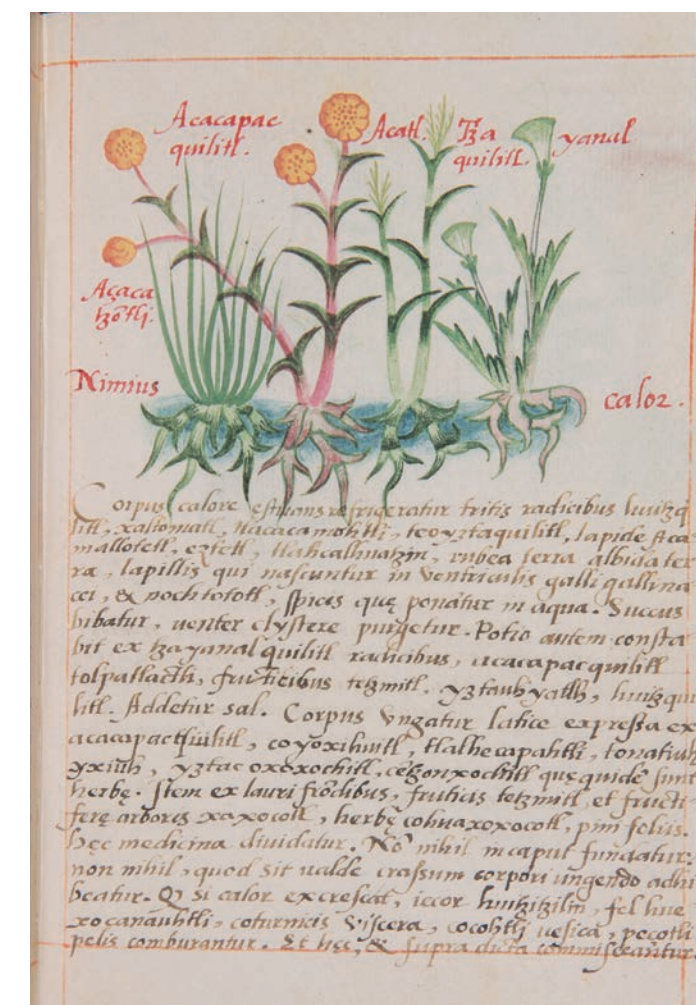 Acacapac
quilitl.
Acatl.
Tza
quilitl.
yanal
Açaca
tzōtli.
Nimius
calor.
Corpus calore estuans refrigeratur tritis radicibus huitzq
litl, xaltomatl, tlacacamohtli, teoyztaquilitl, lapide
mallotetl, eztetl, tlahcalhuatzin, rubea terra albida ter
ra, lapillis qui nascuntur in ventriculis galli gallina
cei, & nochtototl, spicis quę ponātur in aqua. Succus
bibatur, uenter clystere purgetur. Potio autem consta
bit ex tzayanalquilitl radicibus, acacapacquilitl
tolpatlactli, fruticibus tetzmitl. yztauhyatth, huitzqui
litl. Addetur sal. Corpus ungatur latice expressa ex
coyoxihuitl, tlalhecapahtli, tonatiuh
yxiuh, yztac oxoxochitl, cētzonxochitl quęquidē sunt
herbę. Item ex lauri frōdibus, fruticis tetzmitl, et fructi
ferę arboris xaxocotl, herbę cohuaxoxocotl, pini foliis.
hęc medicina diuidatur. Nō nihil in caput fundatur.
non nihil, quod sit ualde crassum corpori ungendo adhi
beatur. Q si calor excrescat, iecor huitzitzilin, fel hue
xocanauhtli, coturnicis viscera, cocohtli uesica, pecotli
pelis comburantur. Et hęc, & supra dicta commisceantur.